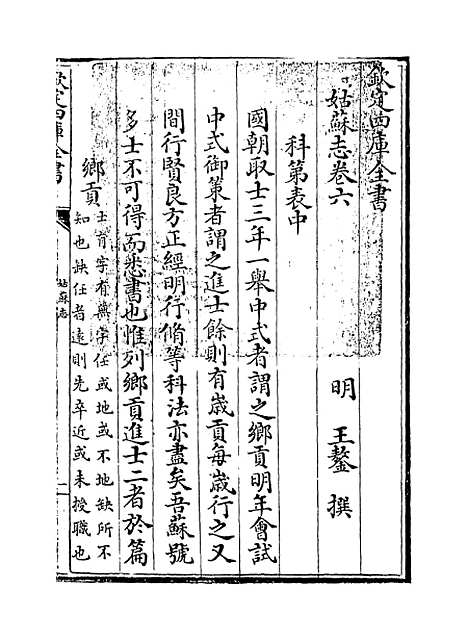 欽定四庫全書
姑蘇志卷六
明 王鏊 撰
科第表中
國朝取士三年一舉中式者謂之鄉貢明年會試
中式御策者謂之進士餘則有歳貢每歳行之又
間行賢良方正經明行脩等科法亦盡矣吾蘇號
多士不可得而悉書也惟列鄉貢進士二者於篇
鄉貢
士有字有無字任或地或不地缺所不
知也缺任者遠則先卒近或未授職也
欽定四庫全書
姑蘇志
一